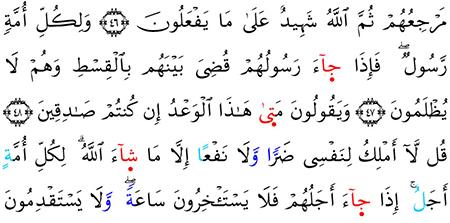 مَرْجِعُهُمْ ثُمَّ ٱللَّهُ شَهِيدٌ عَلَىٰ مَا يَفْعَلُونَ ﴿٤٦﴾ وَلِكُلِّ أُمَّةٍ
رَّسُولٌ ۖ فَإِذَا جَآءَ رَسُولُهُمْ قُضِىَ بَيْنَهُم بِٱلْقِسْطِ وَهُمْ لَا
يُظْلَمُونَ ﴿٤٧﴾ وَيَقُولُونَ مَتَىٰ هَـٰذَا ٱلْوَعْدُ إِن كُنتُمْ صَـٰدِقِينَ ﴿٤٨﴾
قُل لَّآ أَمْلِكُ لِنَفْسِى ضَرًّا وَلَا نَفْعًا إِلَّا مَا شَآءَ ٱللَّهُ ۗ لِكُلِّ أُمَّةٍ
أَجَلٌ ۚ إِذَا جَآءَ أَجَلُهُمْ فَلَا يَسْتَـْٔخِرُونَ سَاعَةً ۖ وَلَا يَسْتَقْدِمُونَ